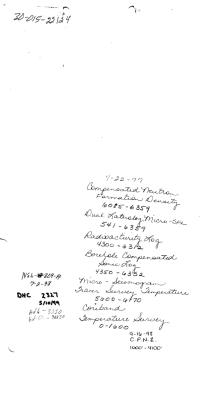 30-015-22124
7-22-77
Compensated Neutron
Formation Density
6085-6359
Dual Laterolog Micro-SFL
541-6359
Radioactivity Log
4300-6312
Borehole Compensated
Sonic Log
4350-6352
Micro - Seismogram
Tracer Survey, Temperature
5000-6170
Coriband
Temperature Survey
0-1600
9-16-98
C.P.N.S.
1000-4100
7-2-98
DHC 2327
5/10/99